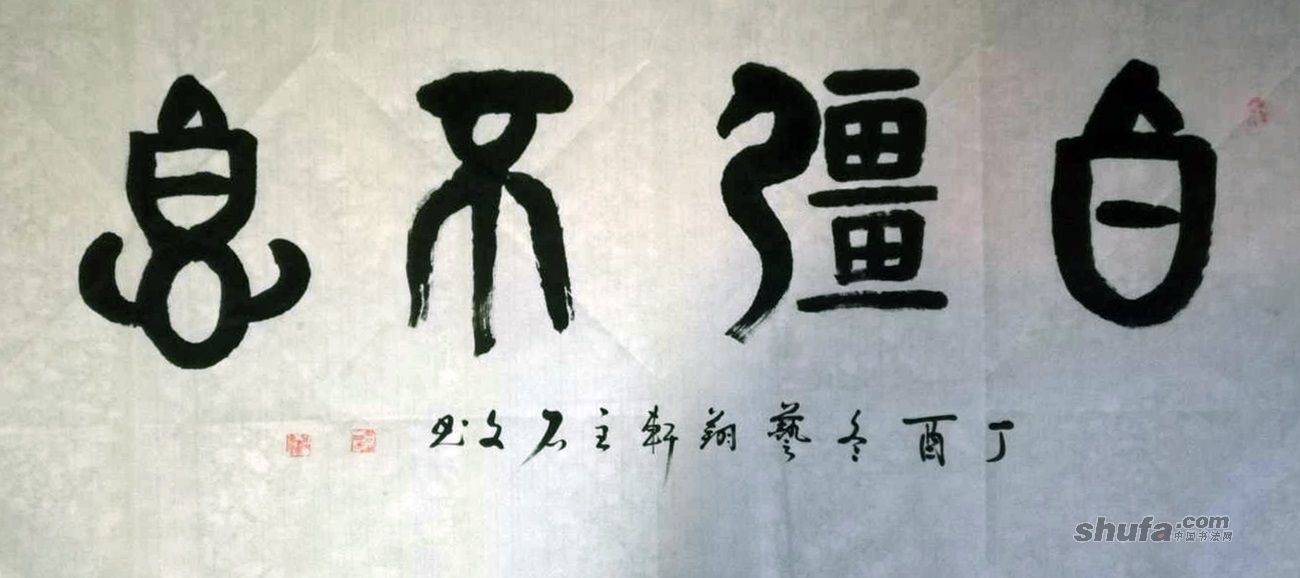 自彊不息
丁酉冬藝翔軒主石文书
shufa.com
中国书法网